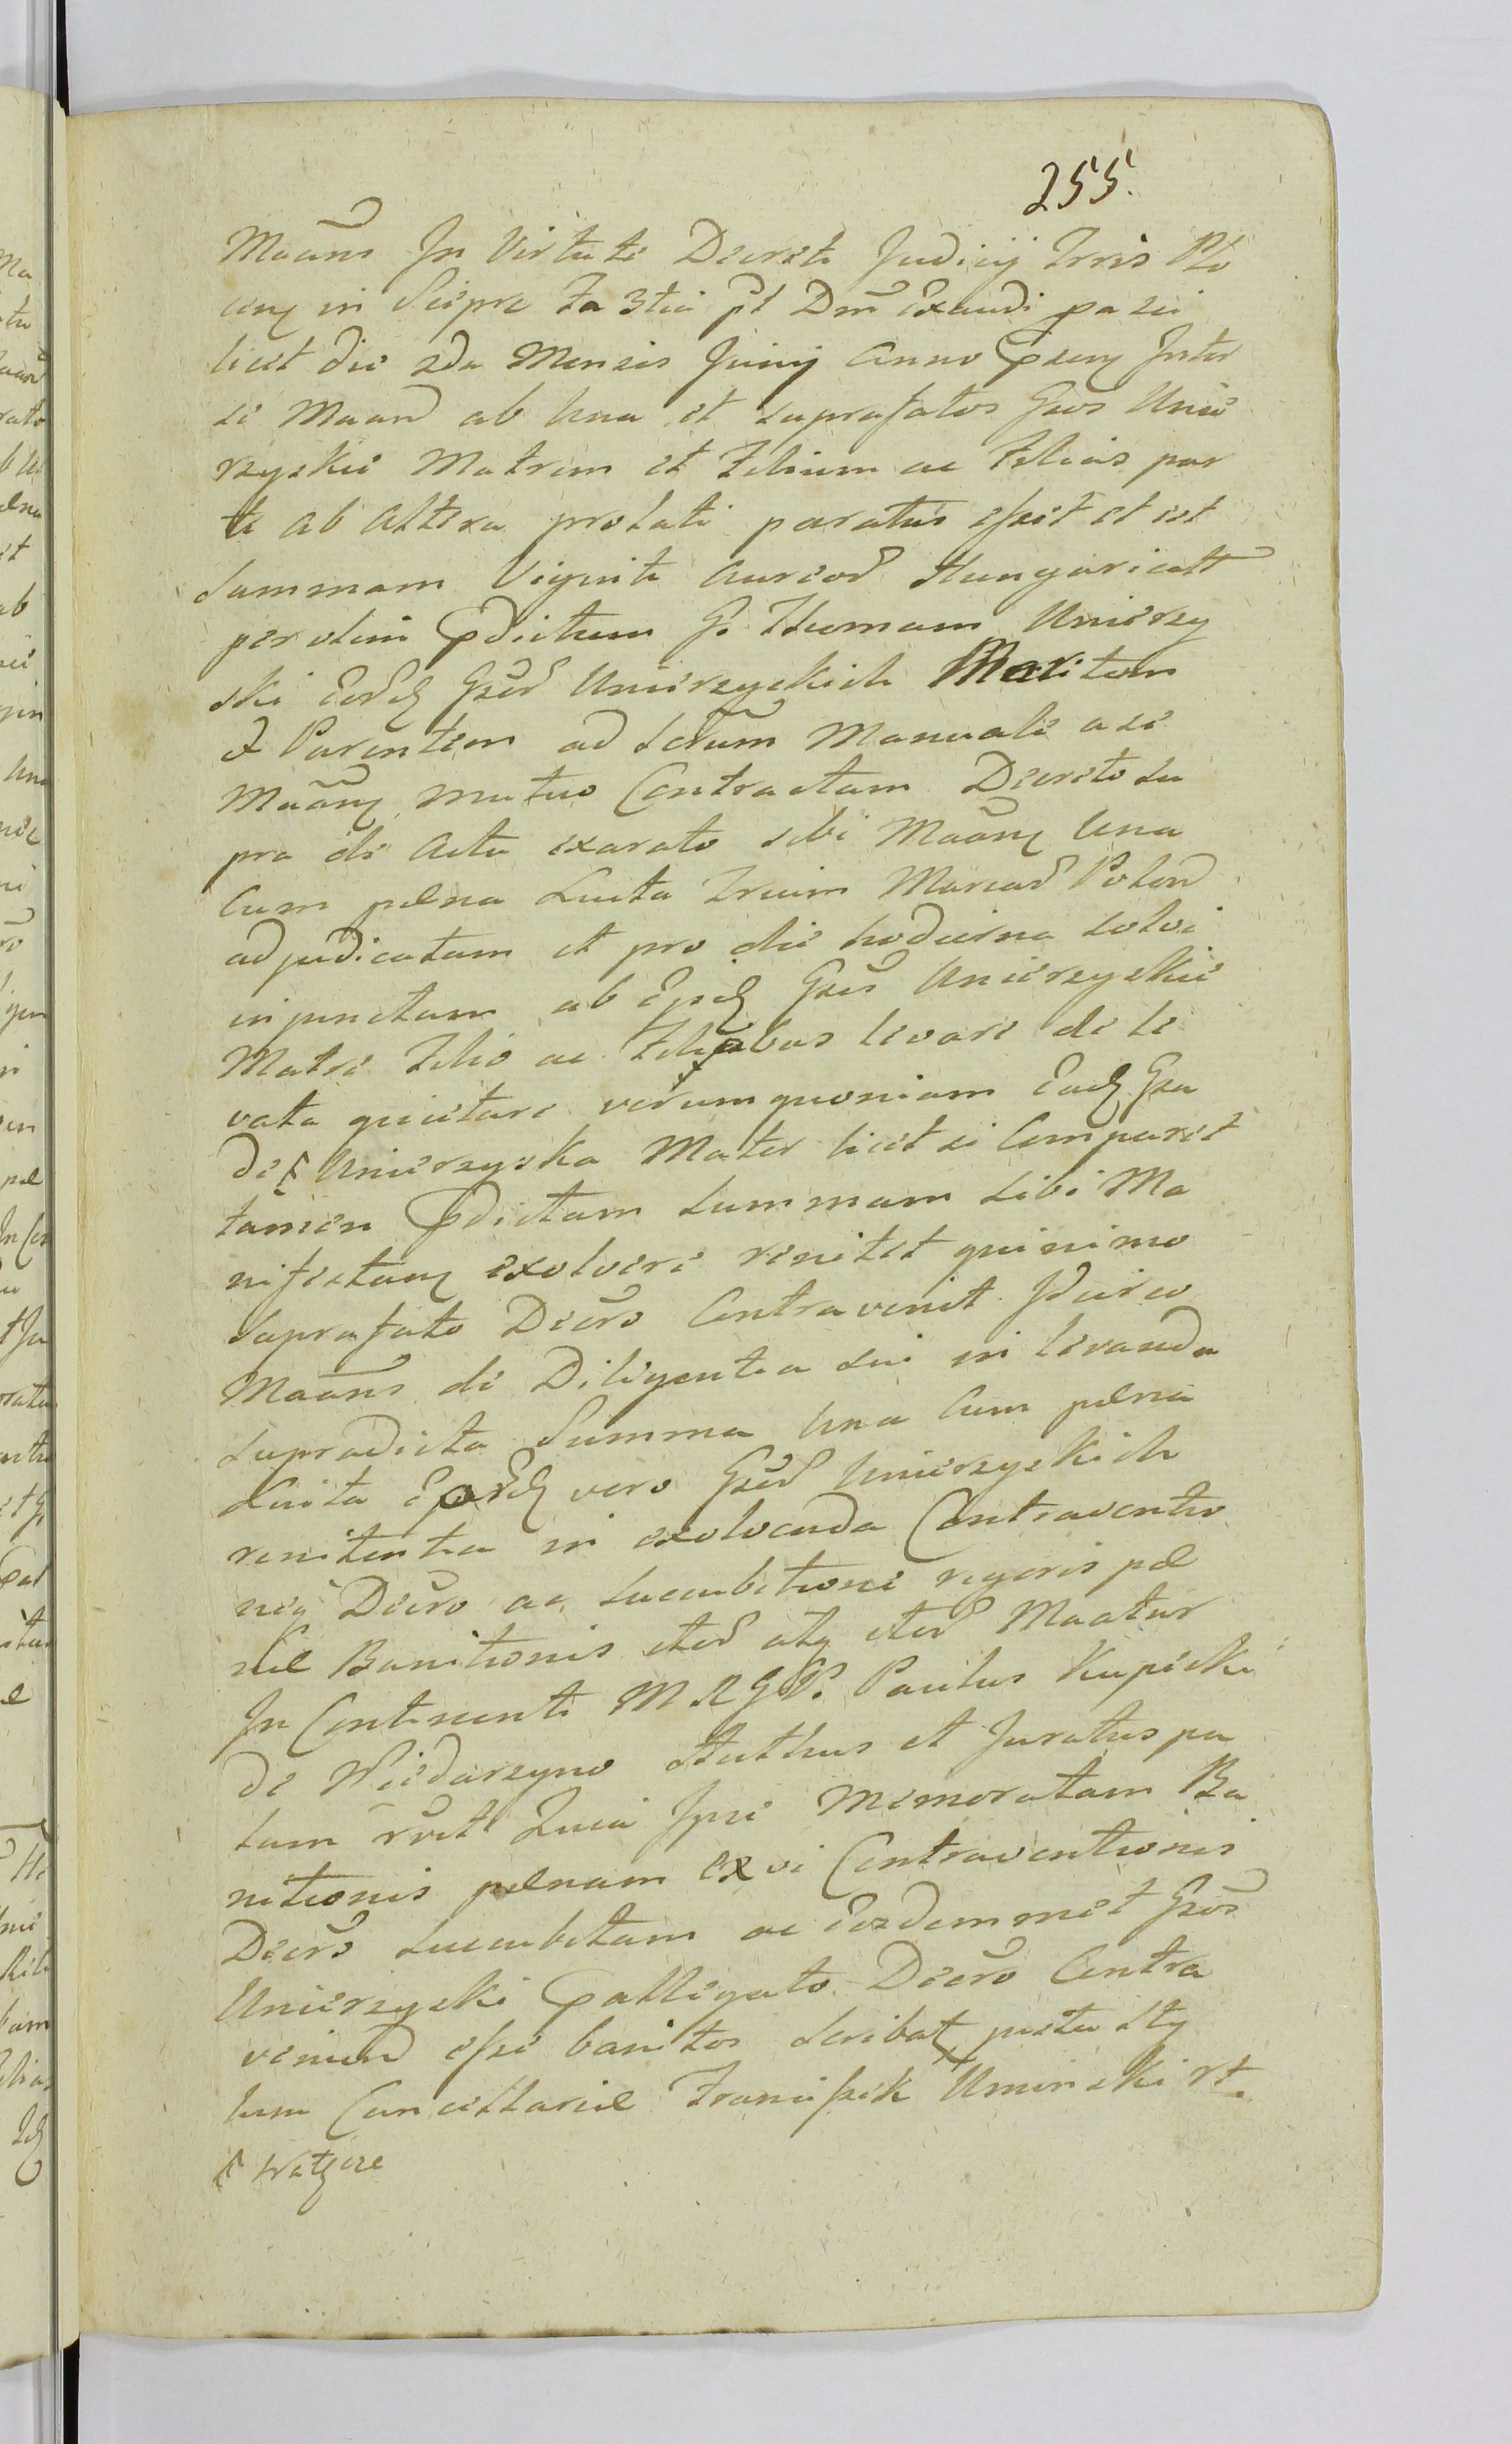 255.
Maans In Virtute Decreti Judicij Trris Plo
cens in Sierpc fa 3tia pt Dnm Exaudi pa sci
licet die 2da Mensis Junij Anno psens Inter
se Maand ab una et suprafatos Gsos Unie
rzyskie Matrem et Filium ac Filias par
te ab altera prolati paratus esset et est
Summam Viginti Aureod Hungaricalł
per olim pdictum G. Thomam Unierzy
ski Eord Gsod Unierzyskich Maritum
& Parentem ad Scrum Manuale a se
Maang mutuo Contractam Decreto su
pra de Actu exarato sibi Maang una
cum pæna Luita Trium Marcad Polond
adjudicatam et pro die hodierna solvi
injunctam ab Epid Gsis Unierzyskie
Matre Filio ac Filiabus levare de le
vata quietare verum quoniam Ead Gsa
de Unierzyska Mater licet si Comparet
tamen pdictam Summam sibi Ma
nifestang exolvere renitet quinimo
Suprafato Decro Contravenit Idcirco
Maans de Diligentia sui in levanda
supradicta Summa una cum pæna
Luita Epord vero Gsod Unierzyskich
renitentia in exolvenda Contraventio
neq Decro ac succubitione rigoris pæ
næ Banitionis eted atq eted Maatur
In Continenti M R G V. Paulus Kupiecki
de Niedarzyno Authus et Juratus pa
lam rvit Quia Ipse memoratam Ba
nitionis pænam ex vi Contraventionis
Decro succubitam ac Eosdemmet Gsos
Unierzyski palligato Decro Contra
venien esse banitos scribat juxta sty
lum Cancellariæ Franciszek Uminski rt.